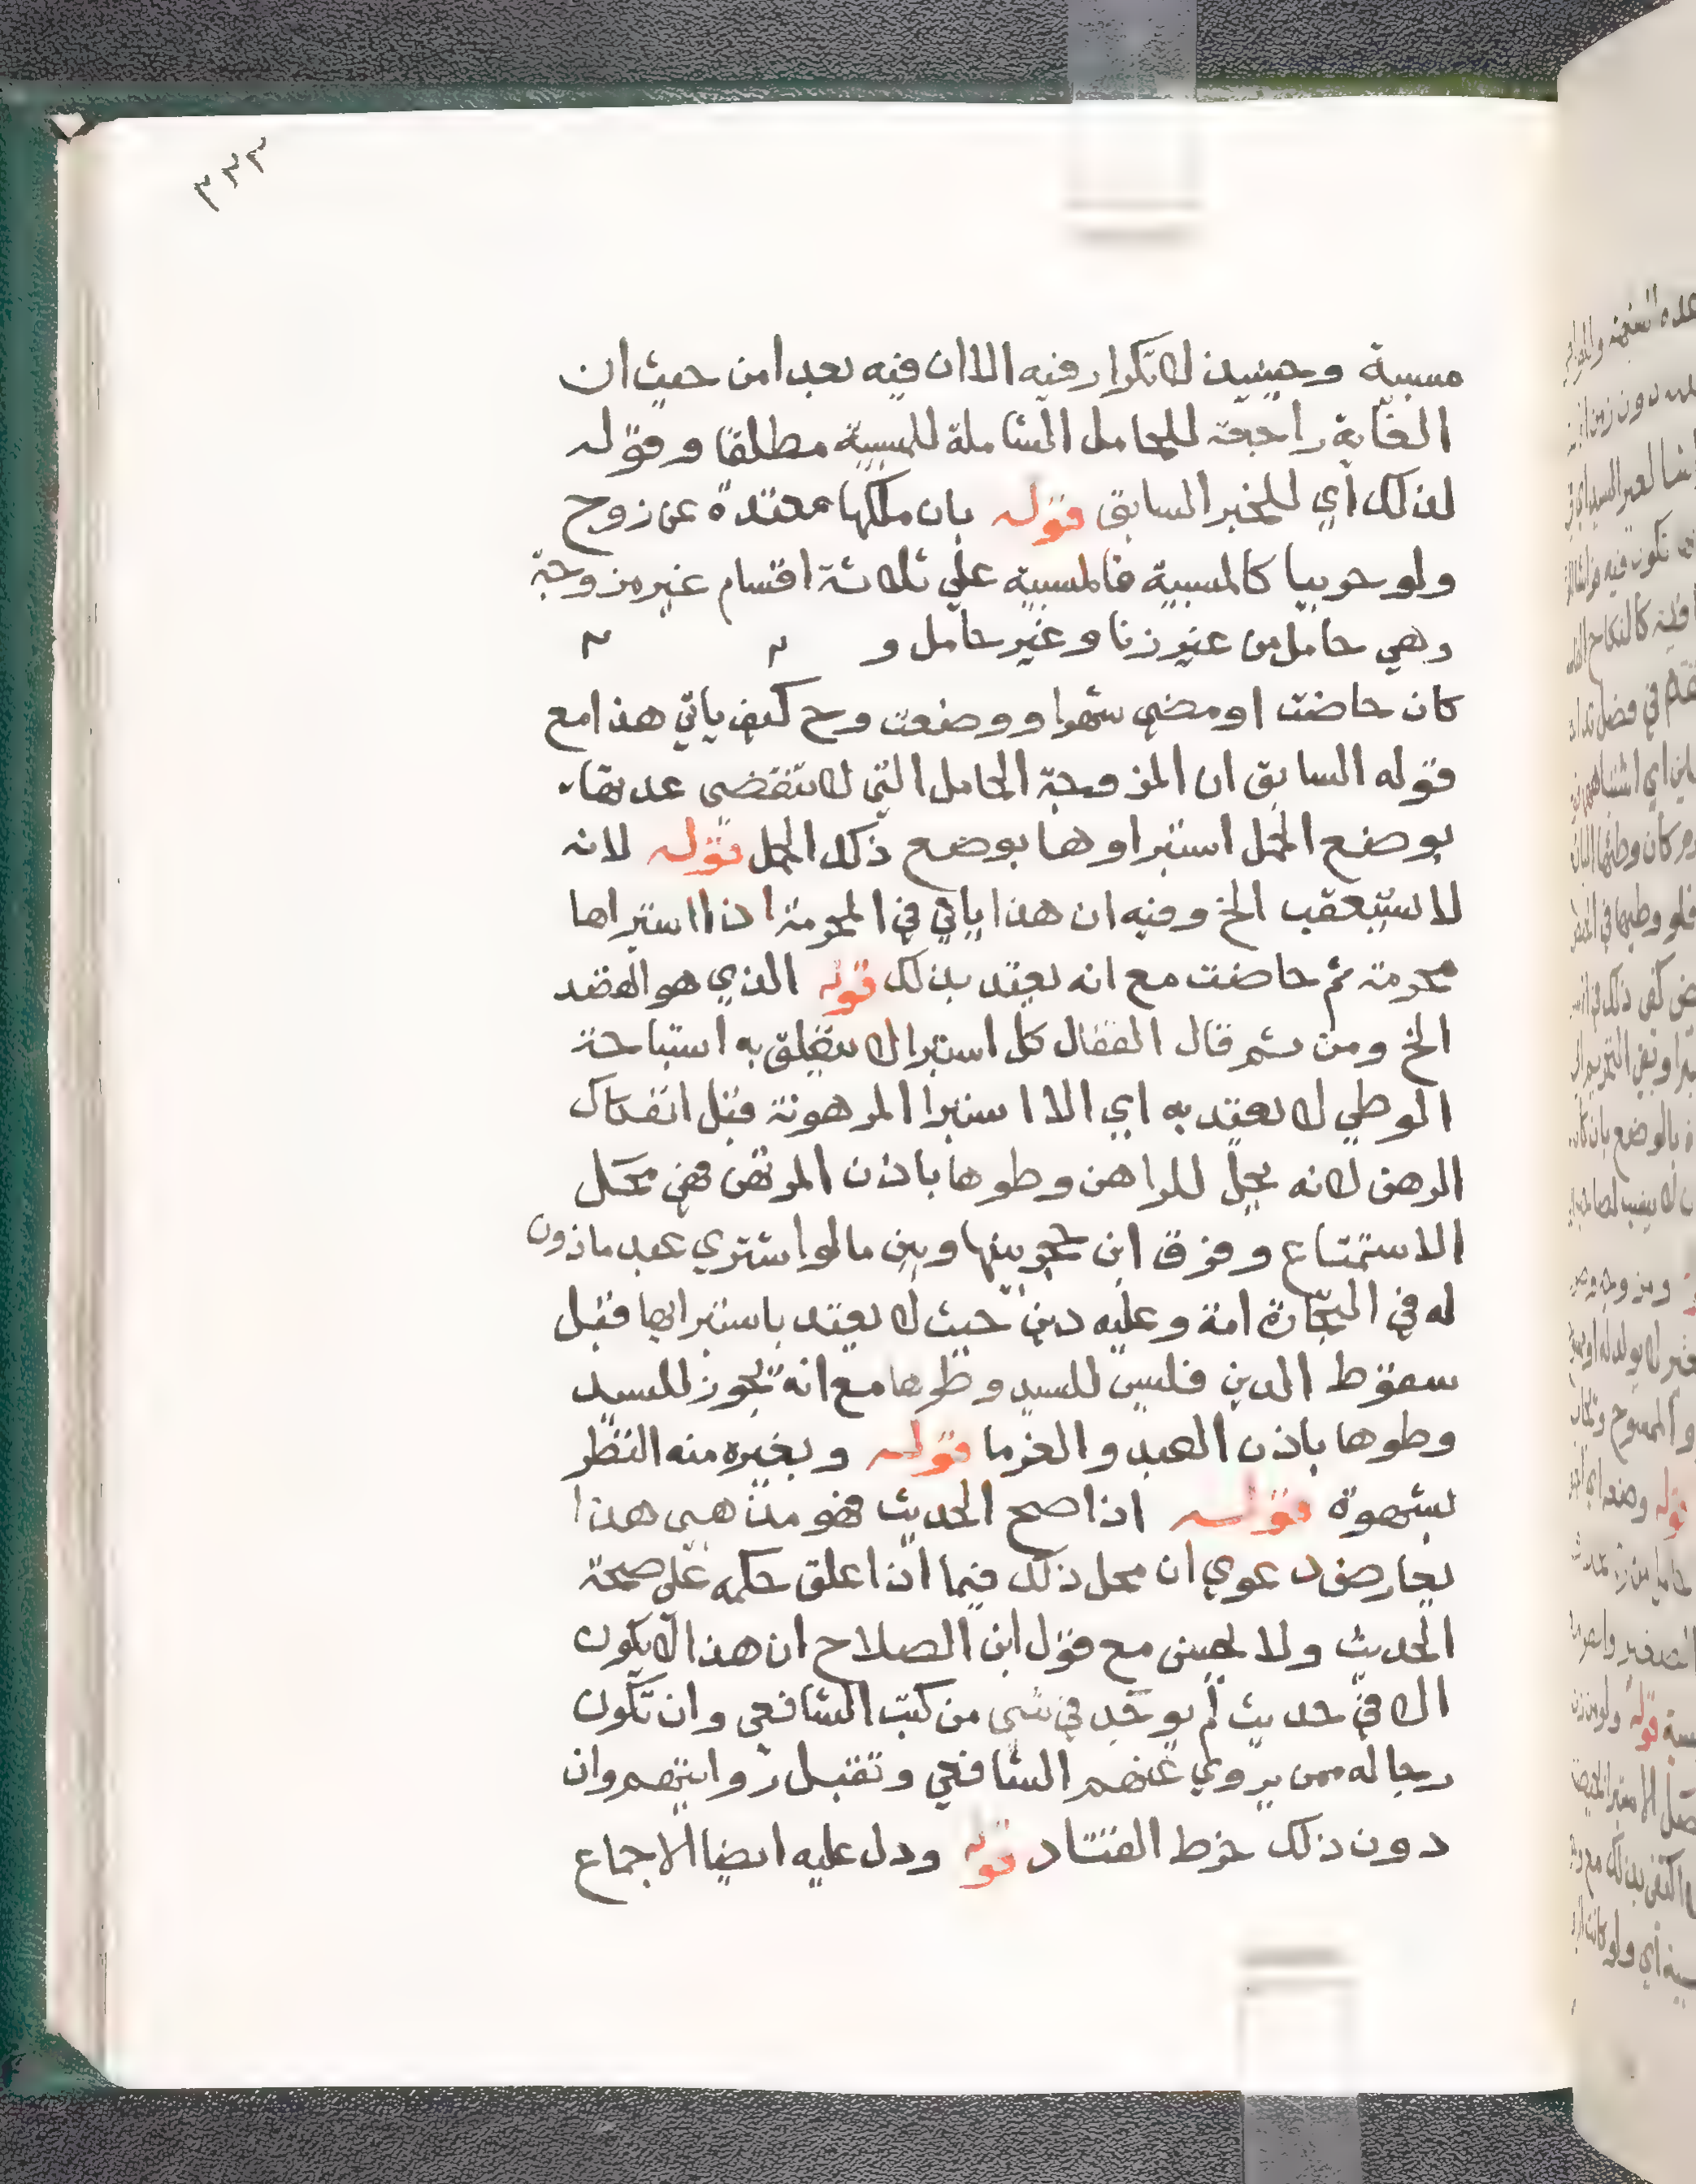 ٣٣٣
مسبية وحينيذ لا تكرار فيه الا ان فيه بعدا من حيث ان
الغاية راجعة للحامل الشاملة للمسبية مطلقا وقوله
لذلك أي للخبر السابق قوله بان ملكها معتدة عن زوج
ولو حربيا كالمسبية فالمسبية علي ثلاثة اقسام غير مزوجة
وهي حامل من غير زنا وغير حامل و
كان حاضت او مضي شهرا ووضعت وح كيف ياتي هذا مع
قوله السابق ان المزوجة الحامل التي لا تنقضي عدتها
بوضع الحمل استبراوها بوضع ذلك الحمل قوله لانه
لا يستعقب الخ وفيه ان هذا ياتي في المحرمة اذا استبراها
محرمة ثم حاضت مع انه يعتد بذلك قوله الذي هو القصد
الخ ومن ثم قال القفال كل استبرا لا يتعلق به استباحة
الوطي لا يعتد به اي الا استبرا المرهونة قبل انفكاك
الرهن لانه يحل للراهن وطوها باذن المرتهن فهي محل
الاستمتاع وفرق ابن حجر بينها وبين ما لو اشتري عبد ماذون
له في التجارة امة وعليه دين حيث لا يعتد باستبرايها قبل
سقوط الدين فليس للسيد وطوها مع انه يجوز للسيد
وطوها باذن العبد والغرما قوله وبغيره منه النظر
بشهوة قوله اذا صح الحديث فهو مذهبي هذا
يعارض دعوي ان محل ذلك فيما اذا علق حكمه علي صحة
الحديث ولا يحسن مع قول ابن الصلاح ان هذا لا يكون
الا في حديث لم يوجد في شي من كتب الشافعي وان تكون
رجاله ممن يروي عنهم الشافعي وتقبل روايتهم وان
دون ذلك خرط القتاد قوله ودل عليه ايضا الاجماع